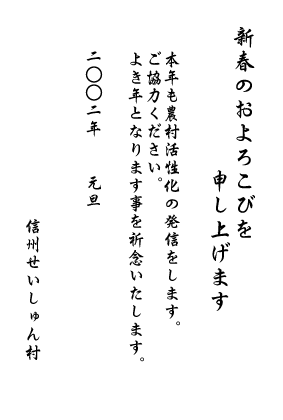 新春のおよろこびを
申し上げます
本年も農村活性化の発信をします。
ご協力ください。
よき年となります事を祈念いたします。
二〇〇二年　元旦
信州せいしゅん村